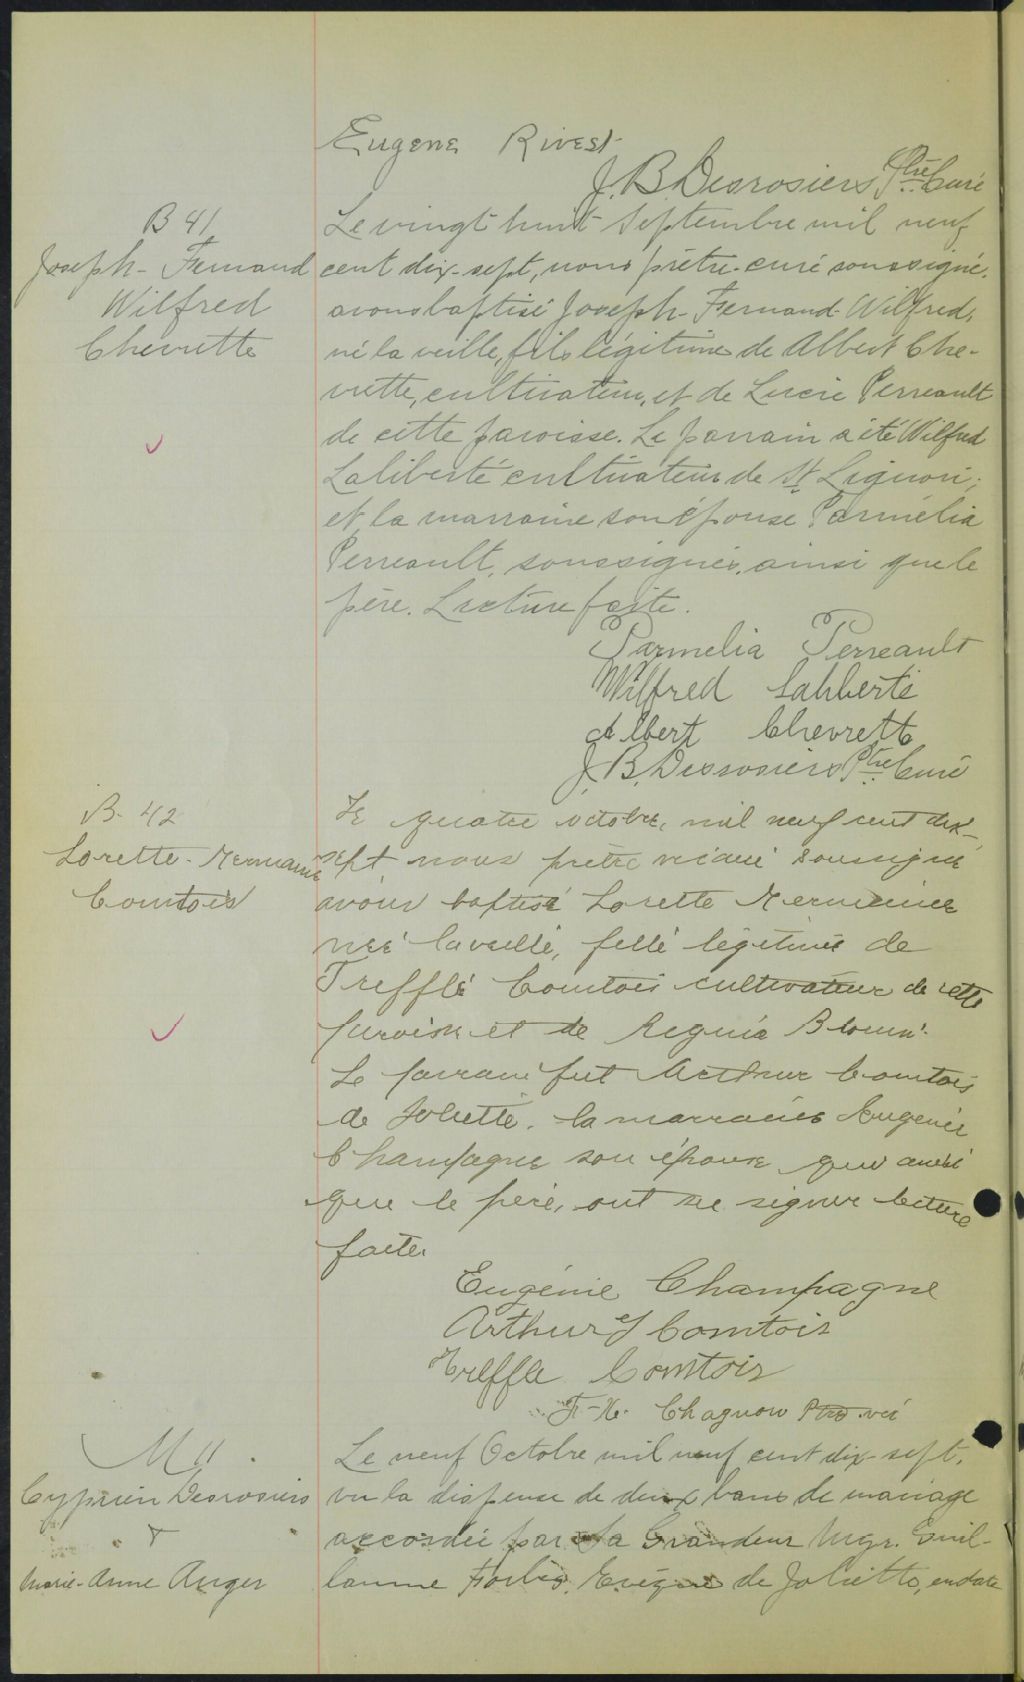 Eugene Rivest
J. B. Desrosiers Ptre Curé
B 41
Joseph-Fernand
Wilfred
Chevrette
Le vingt-huit Septembre mil neuf
cent dix-sept, nous prêtre-curé soussigné,
avons baptisé Joseph-Fernand-Wilfred,
né la veille, fils légitime de Albert Che-
vrette, cultivateur, et de Lucie Perreault
de cette paroisse. Le parrain a été Wilfred
Laliberté cultivateur de St Liguori;
et la marraine son épouse Parmélia
Perreault, soussignés, ainsi que le
père. Lecture faite.
Parmelia Perreault
Wilfred Laliberté
Albert Chevrette
J. B. Desrosiers Ptre Curé
B. 42
Lorette-Germaine
Comtois
Le quatre octobre, mil neuf cent dix-
sept, nous prêtre vicaire soussigné
avons baptisé Lorette Germaine
née la veille, fille légitime de
Trefflé Comtois cultivateur de cette
paroisse et de Regina Blouin.
Le parrain fut Arthur Comtois
de Joliette. la marraine Eugenie
Champagne son épouse qui ainsi
que le père, ont su signer lecture
faite.
Eugénie Champagne
Arthur Comtois
Treffle Comtois
F-X. Chagnon Ptre vic
M 11
Cyprien Desrosiers
&
Marie-Anne Auger
Le neuf Octobre mil neuf cent dix-sept,
vu la dispense de deux bans de mariage
accordée par Sa Grandeur Mgr. Guil-
laume Forbes, Evêque de Joliette, en date